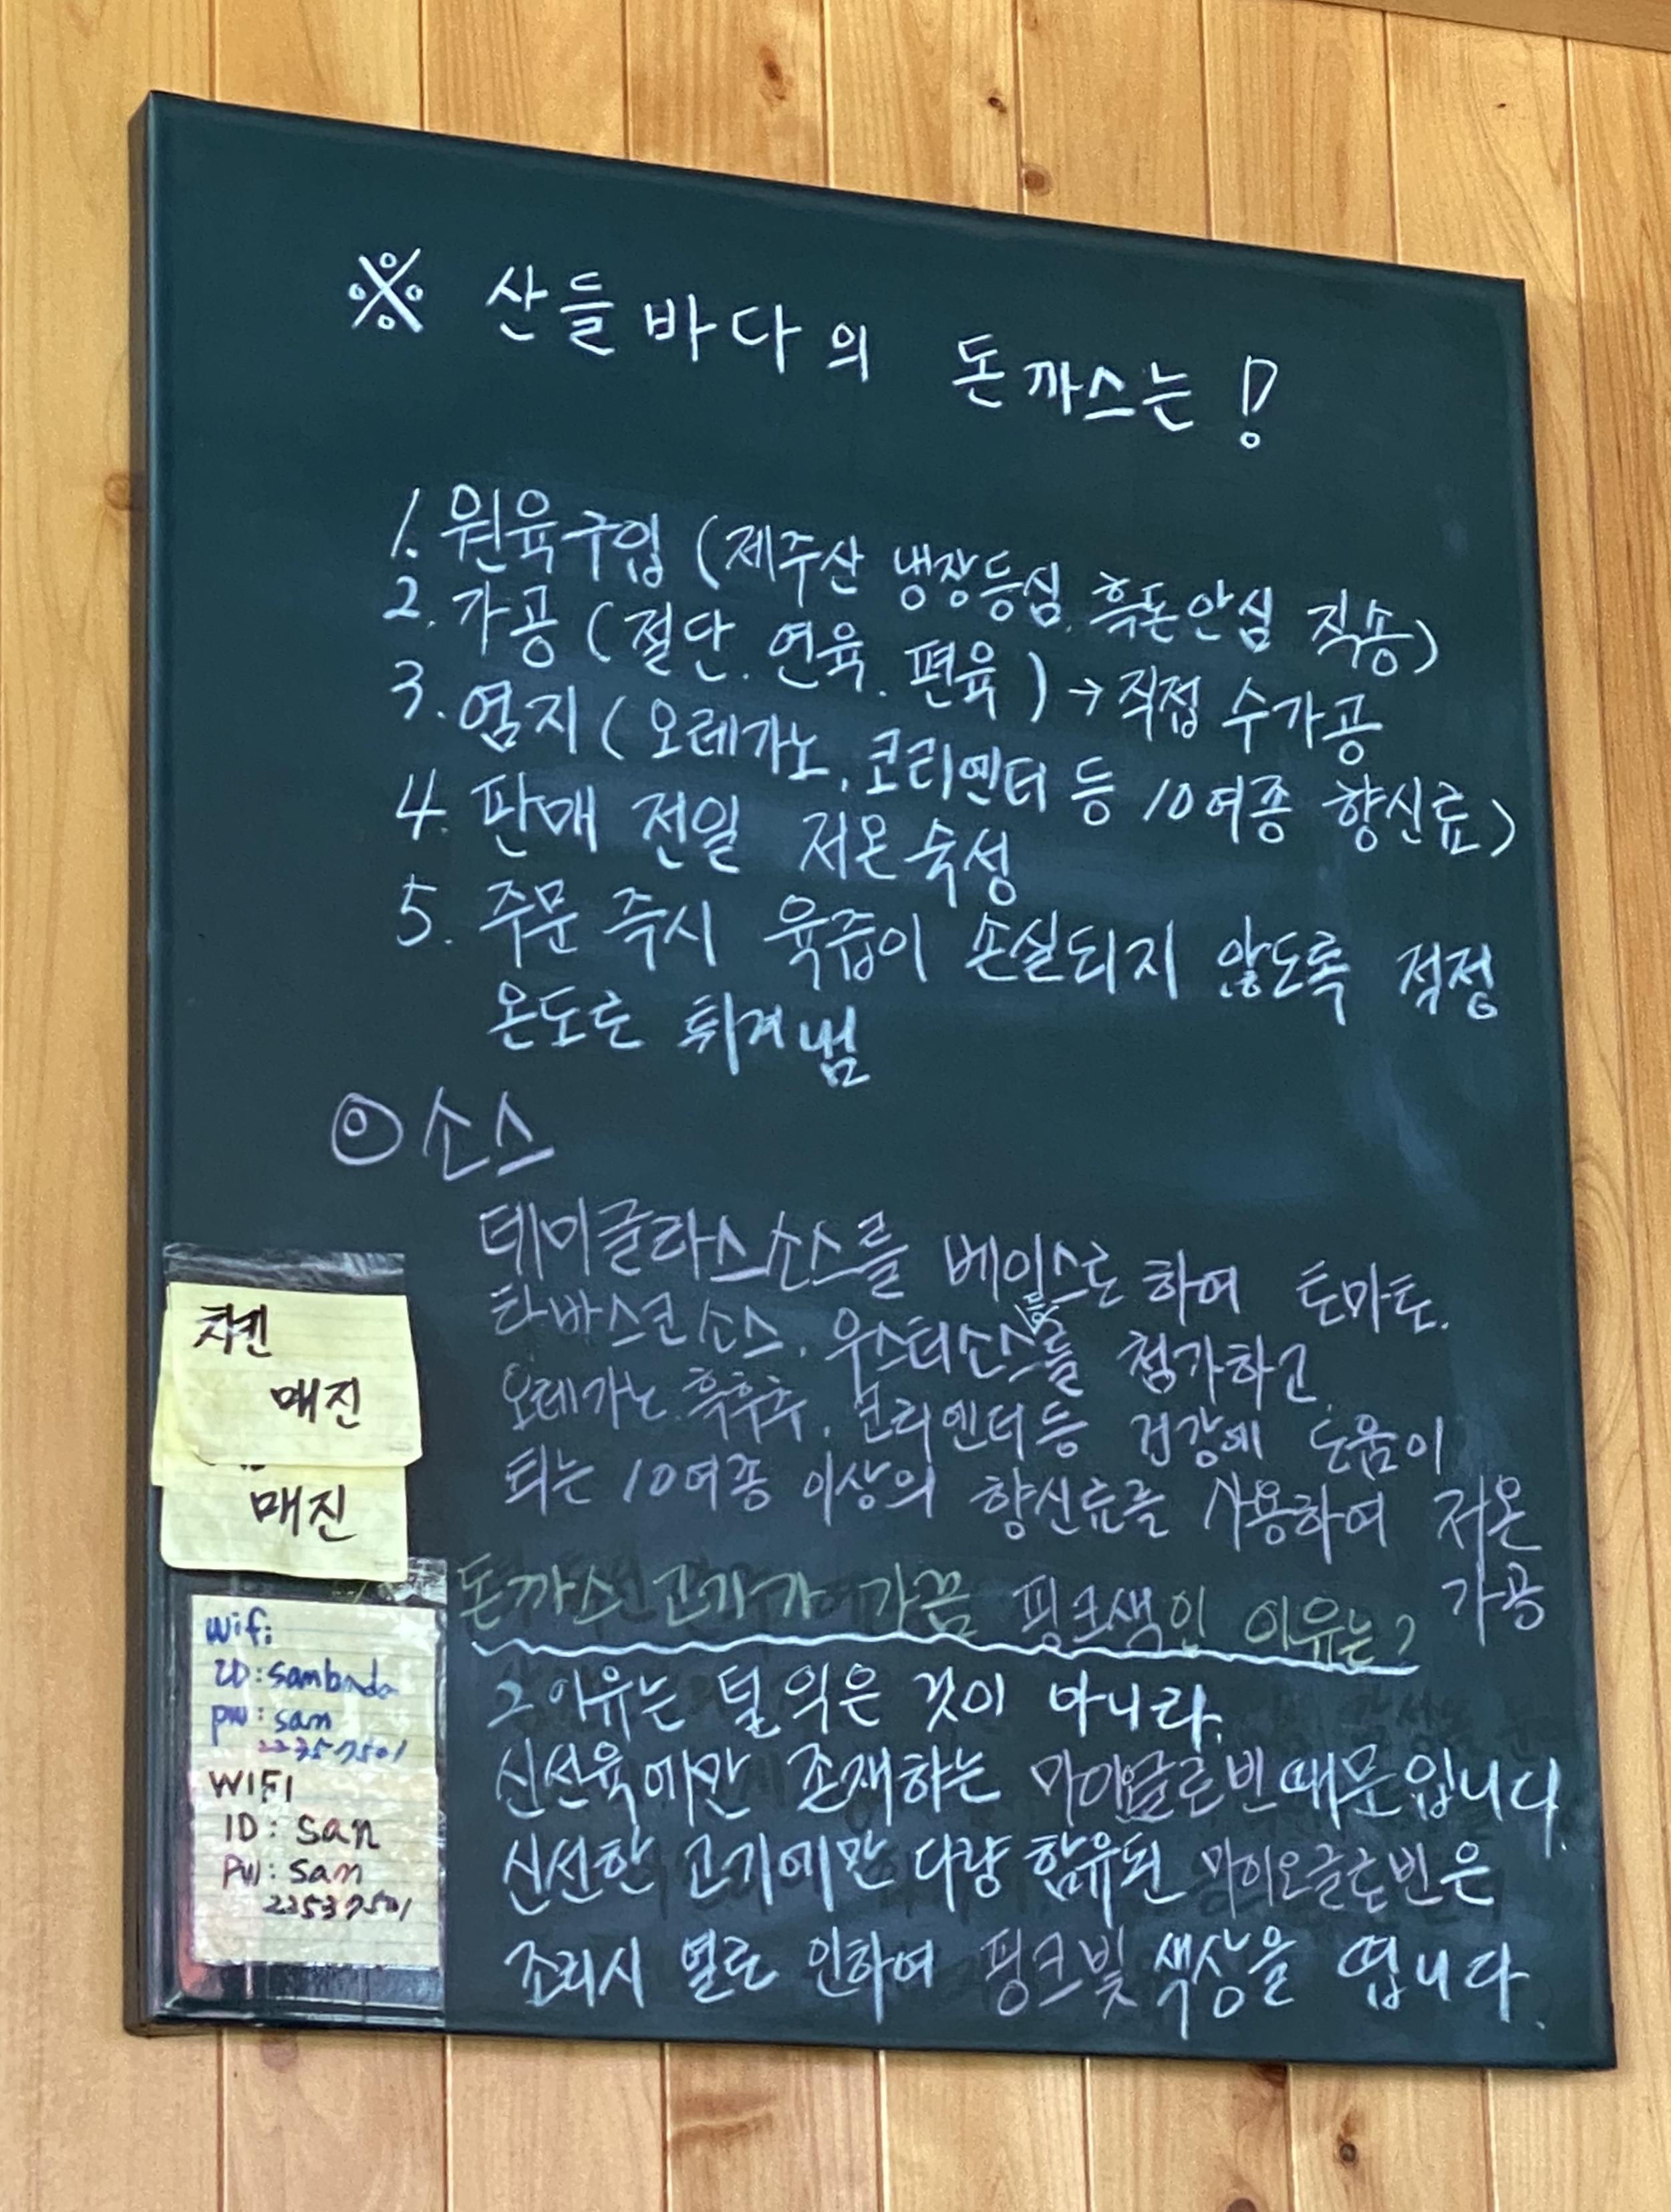 ※ 산들바다의 돈까스는!
1. 원육구입 (제주산 냉장등심, 흑돈안심 직송)
2. 가공 (절단. 연육. 편육) → 직접 수가공
3. 염지 (오레가노, 코리엔더 등 10여종 향신료)
4. 판매 전일 저온숙성
5. 주문 즉시 육즙이 손실되지 않도록 적정
온도로 튀겨냄
◎ 소스
데미글라스소스를 베이스로 하여 토마토.
타바스코소스. 우스터소스등을 첨가하고
오레가노. 흑후추. 코리엔더등 건강에 도움이
되는 10여종 이상의 향신료를 사용하여 저온
가공
돈까스 고기가 가끔 핑크색인 이유는?
그 이유는 덜 익은 것이 아니라.
신선육에만 존재하는 마이오글로빈때문입니다.
신선한 고기에만 다량 함유된 마이오글로빈은
조리시 열로 인하여 핑크빛 색상을 띕니다.
치킨
매진
매진
wifi
ID: sambada
pw: san
22357501
WIFI
ID: san
PW: san
22537501